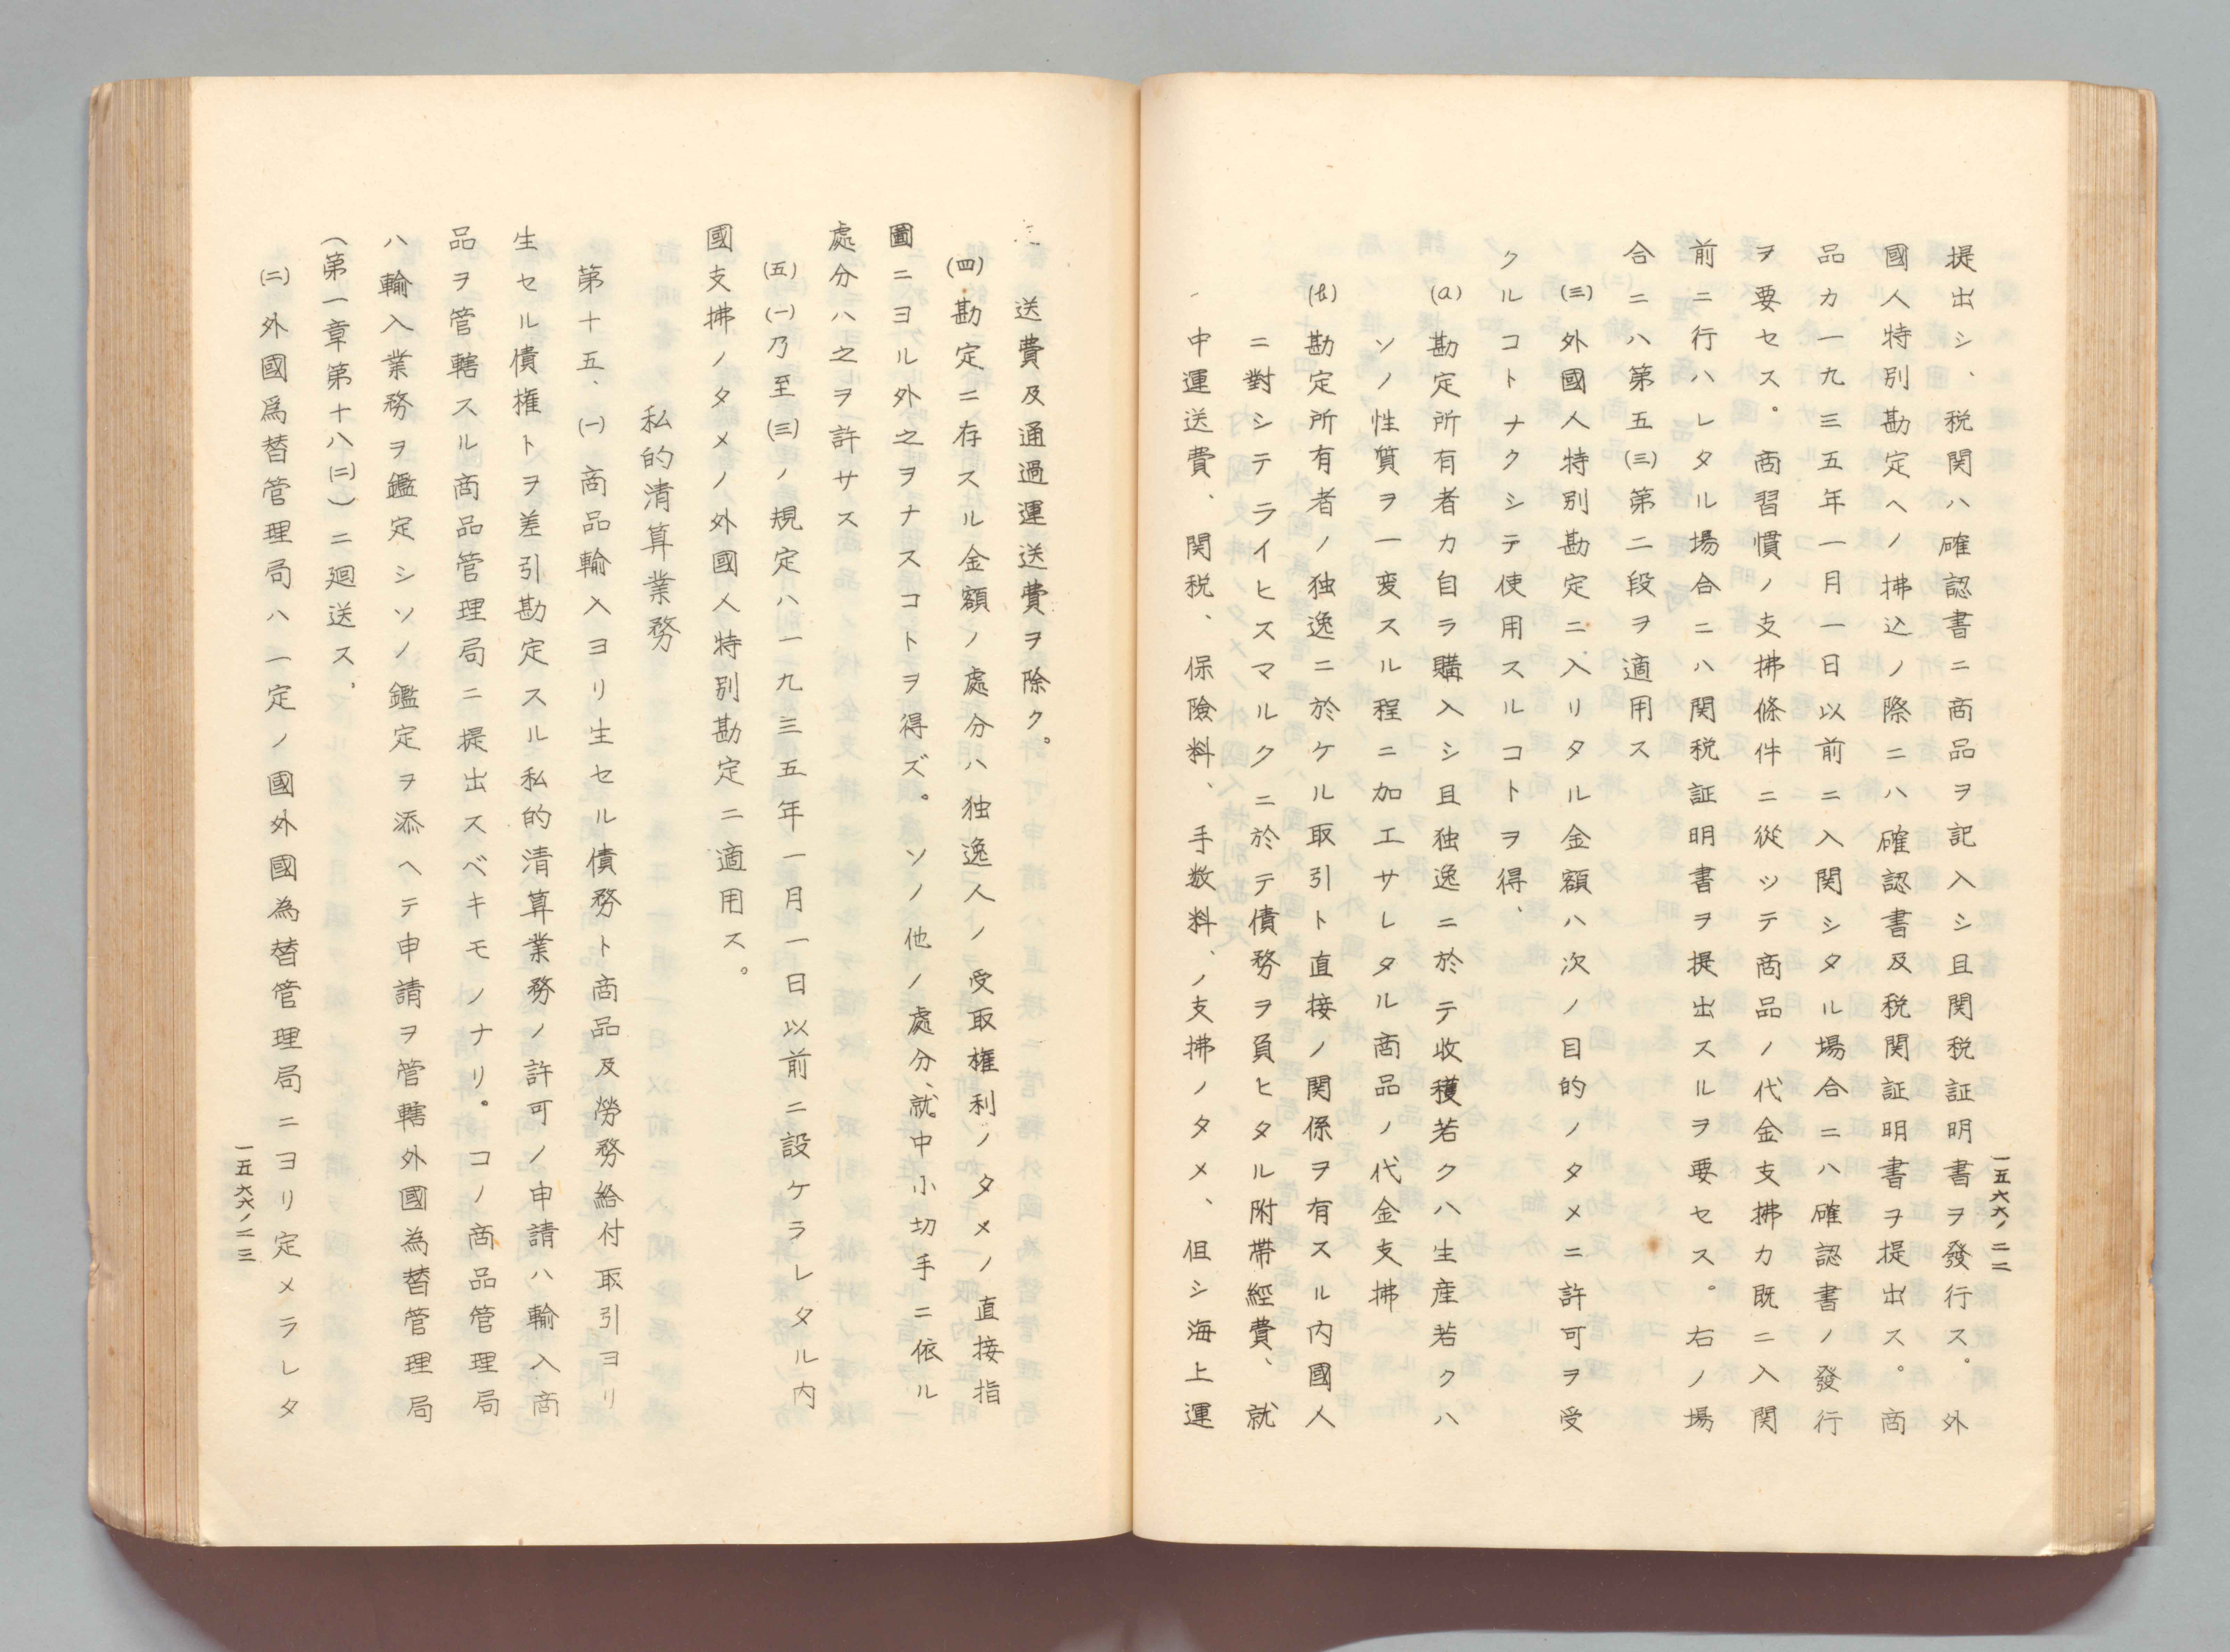 提出シ、税関ハ確認書ニ商品ヲ記入シ且関税証明書ヲ發行ス。外
國人特別勘定ヘノ拂込ノ際ニハ確認書及税関証明書ヲ提出ス。商
品カ一九三五年一月一日以前ニ入関シタル場合ニハ確認書ノ發行
ヲ要セス。商習慣ノ支拂條件ニ從ッテ商品ノ代金支拂カ既ニ入関
前ニ行ハレタル場合ニハ関税証明書ヲ提出スルヲ要セス。右ノ場
合ニハ第五㈢第二段ヲ適用ス
㈢外國人特別勘定ニ入リタル金額ハ次ノ目的ノタメニ許可ヲ受
クルコトナクシテ使用スルコトヲ得、
(a)勘定所有者カ自ラ購入シ且独逸ニ於テ收穫若クハ生産若クハ
ソノ性質ヲ一変スル程ニ加工サレタル商品ノ代金支拂
(b)勘定所有者ノ独逸ニ於ケル取引ト直接ノ関係ヲ有スル内國人
ニ對シテライヒスマルクニ於テ債務ヲ負ヒタル附帯經費、就
中運送費、関税、保險料、手数料、ノ支拂ノタメ、但シ海上運
一五六六ノ二二
送費及通過運送費ヲ除ク。
㈣勘定ニ存スル金額ノ處分ハ独逸人ノ受取権利ノタメノ直接指
圖ニヨル外之ヲナスコトヲ得ズ。ソノ他ノ處分、就中小切手ニ依ル
處分ハ之ヲ許サス
㈤㈠乃至㈢ノ規定ハ一九三五年一月一日以前ニ設ケラレタル内
國支拂ノタメノ外國人特別勘定ニ適用ス。
私的清算業務
第十五、㈠商品輸入ヨリ生セル債務ト商品及勞務給付取引ヨリ
生セル債権トヲ差引勘定スル私的清算業務ノ許可ノ申請ハ輸入商
品ヲ管轄スル商品管理局ニ提出スベキモノナリ。コノ商品管理局
ハ輸入業務ヲ鑑定シソノ鑑定ヲ添ヘテ申請ヲ管轄外國為替管理局
(第一章第十八㈡)ニ廻送ス、
㈡外國爲替管理局ハ一定ノ國外國為替管理局ニヨリ定メラレタ
一五六六ノ二三